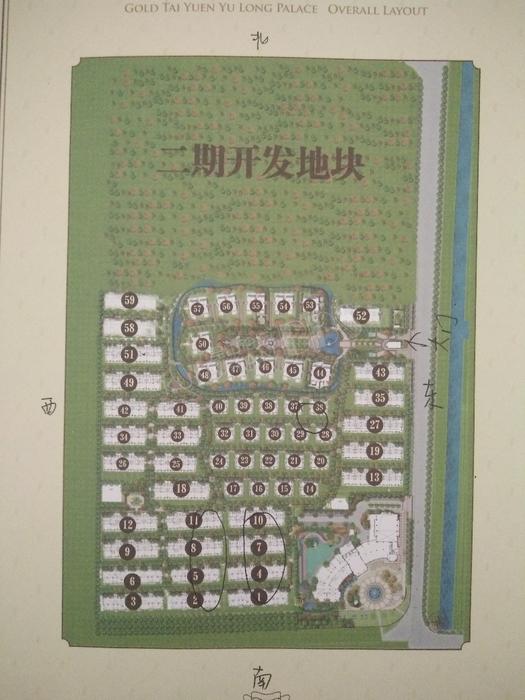 GOLD TAI YUEN YU LONG PALACE OVERALL LAYOUT
北
二期开发地块
59
57 56 55 54 53
52
58
51
50
大门
49
48 47 46 45 44
43
西
东
42 41 40 39 38 37 36
35
34 33 32 31 30 29 28
27
26 25 24 23 22 21 20
19
18 17 16 15 14
13
12 11 10
9 8 7
6 5 4
3 2 1
南